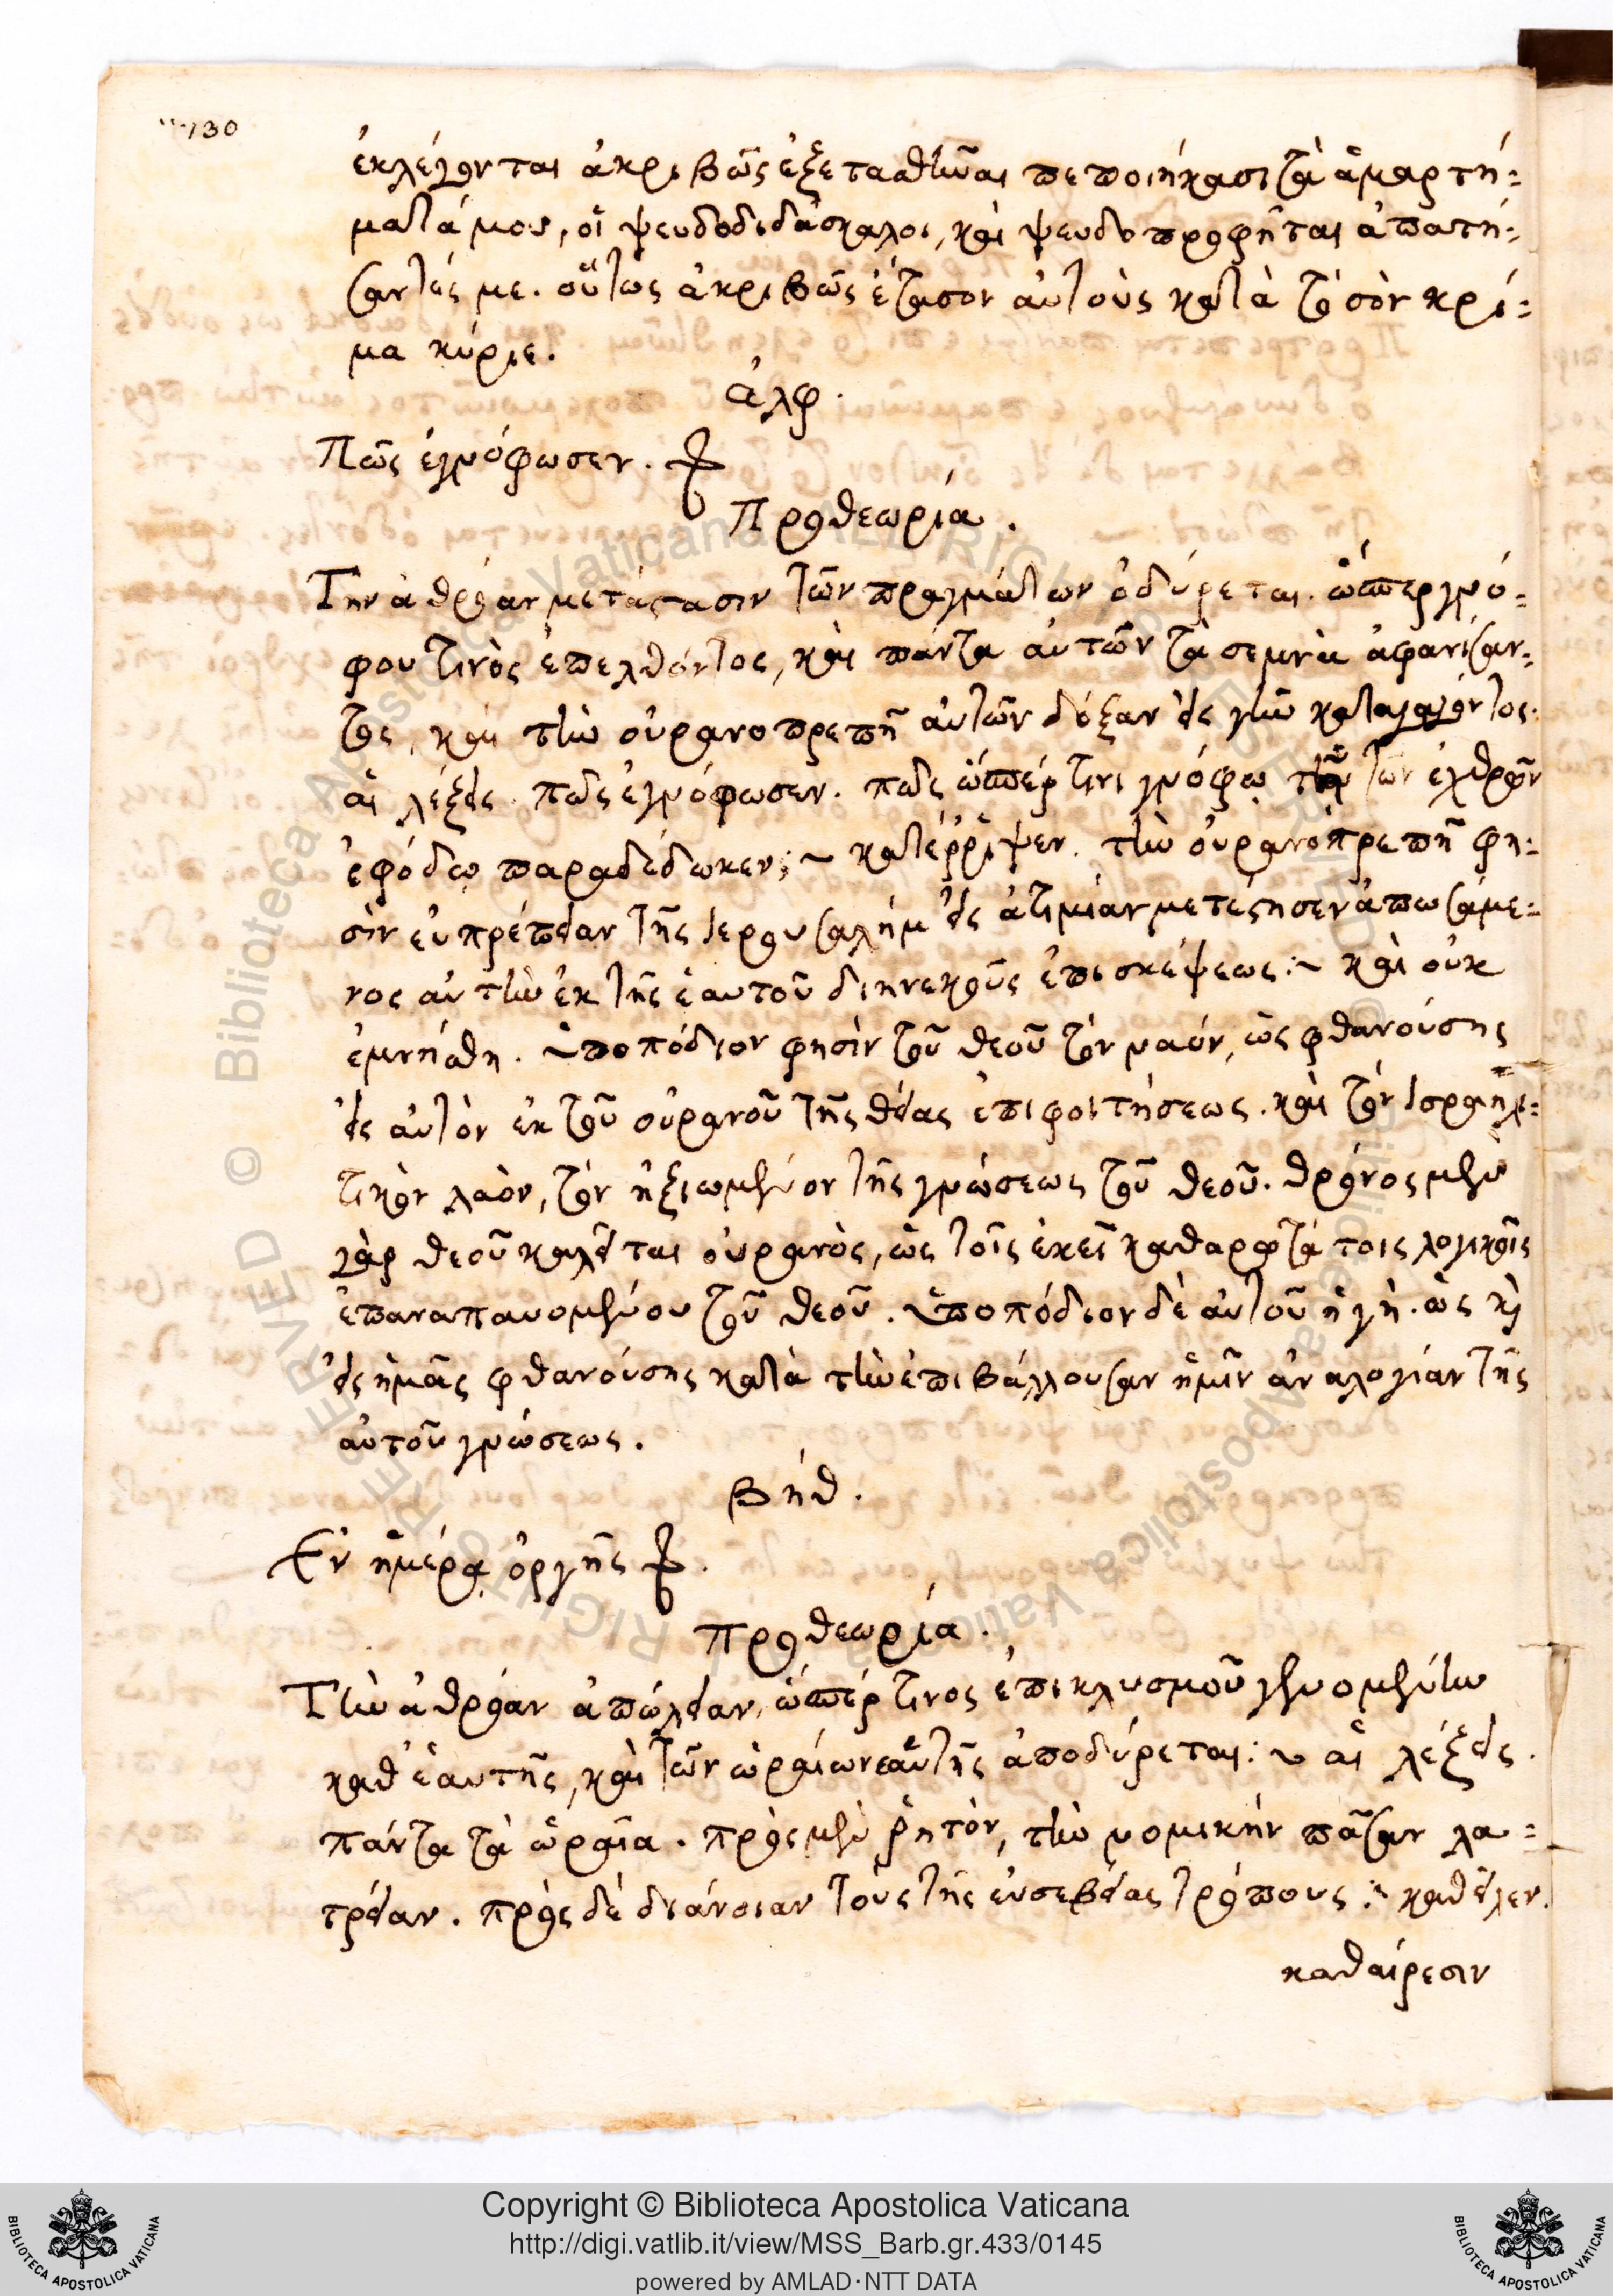 130
ἐκλέγονται ἀκριβῶς ἐξετασθῆναι πεποιήκασι τὰ ἁμαρτή=
ματά μου, οἱ ψευδοδιδάσκαλοι, καὶ ψευδοπροφῆται ἀπατή=
σαντές με. οὕτως ἀκριβῶς ἔτασον αὐτοὺς κατὰ τὸ σὸν κρί=
μα κύριε.
ἄλφ.
Πῶς ἐγνόφωσεν.
Προθεωρία.
Τὴν ἀθρόαν μετάστασιν τῶν πραγμάτων ὀδύρεται. ὥσπερ γνό=
φου τινὸς ἐπελθόντος, καὶ πάντα αὐτῶν τὰ σεμνὰ ἀφανίσαν=
τος, καὶ τὴν οὐρανοπρεπῆ αὐτῶν δόξαν εἰς γῆν καταγαγόντος.
αἱ λέξεις. πῶς ἐγνόφωσεν. πῶς ὥσπέρ τινι γνόφῳ τῶν ἐχθρῶν
ἐφόδῳ παραδέδωκεν; ~ κατέρριψεν. τὴν οὐρανόπρεπῆ φη=
σὶν εὐπρέπειαν τῆς Ιερουσαλήμ εἰς ἀτιμίαν μετέστησεν ἀπωσάμε=
νος αὐτὴν ἐκ τῆς ἑαυτοῦ διηνεκοῦς ἐπισκέψεως:~ καὶ οὐκ
ἐμνήσθη. ὑποπόδιον φησὶν τοῦ θεοῦ τὸν ναόν, ὡς φθανούσης
εἰς αὐτὸν ἐκ τοῦ οὐρανοῦ τῆς θείας ἐπιφοιτήσεως. καὶ τὸν Ισραηλι=
τικὸν λαὸν, τὸν ἠξιωμένον τῆς γνώσεως τοῦ θεοῦ. θρόνος μὲν
γὰρ θεοῦ καλεῖται οὐρανὸς, ὡς τοῖς ἐκεῖ καθαρωτάτοις λογικοῖς
ἐπαναπαυομένου τοῦ θεοῦ. ὑποπόδιον δὲ αὐτοῦ ἡ γῆ. ὡς κὶ
εἰς ἡμᾶς φθανούσης κατὰ τὴν ἐπιβάλλουσαν ἡμῖν ἀναλογίαν τῆς
αὐτοῦ γνώσεως.
Βήθ.
Ἐν ἡμέρᾳ ὀργῆς
Προθεωρία.
Τὴν ἀθρόαν ἀπώλειαν, ὥσπέρ τινος ἐπικλυσμοῦ γενομένην
καθ' ἑαυτῆς, καὶ τῶν ὡραίων ἑαυτῆς ἀποδύρεται: ~ αἱ λέξεις.
πάντα τὰ ὡραῖα. πρὸς μὲν ῥητόν, τὴν νομικὴν πᾶσαν λα=
τρείαν. πρὸς δὲ διάνοιαν τοὺς τῆς εὐσεβείας τρόπους:~ καθεῖλεν.
καθαίρεσιν
© Biblioteca Apostolica Vaticana ALL RIGHTS RESERVED
Copyright © Biblioteca Apostolica Vaticana
http://digi.vatlib.it/view/MSS_Barb.gr.433/0145
powered by AMLAD·NTT DATA
BIBLIOTECA APOSTOLICA VATICANA
BIBLIOTECA APOSTOLICA VATICANA